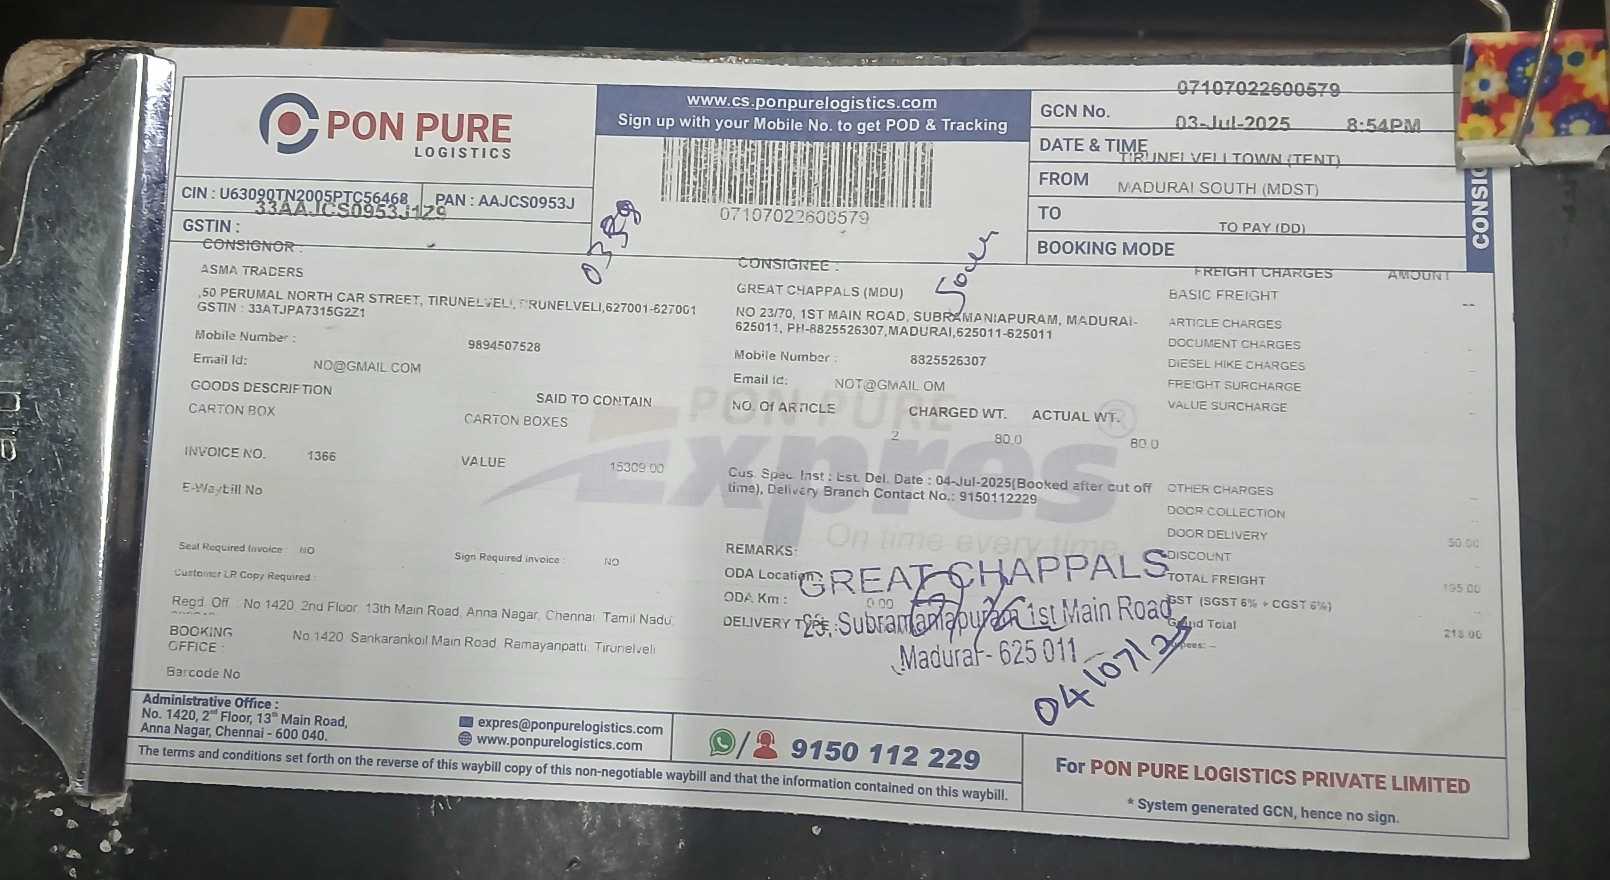 PON PURE
LOGISTICS
www.cs.ponpurelogistics.com
Sign up with your Mobile No. to get POD & Tracking
07107022600579
GCN No. 07107022600579
DATE & TIME 03-Jul-2025 8:54PM
FROM TIRUNELVELI TOWN (TENT)
TO MADURAI SOUTH (MDST)
BOOKING MODE TO PAY (DD)
CIN : U63090TN2005PTC56468 PAN : AAJCS0953J
GSTIN : 33AAJCS0953J1Z9
CONSIGNOR :
ASMA TRADERS
,50 PERUMAL NORTH CAR STREET, TIRUNELVELI, TIRUNELVELI,627001-627001
GSTIN : 33ATJPA7315G2Z1
Mobile Number : 9894507528
Email Id: NO@GMAIL.COM
GOODS DESCRIPTION SAID TO CONTAIN
CARTON BOX CARTON BOXES
INVOICE NO. 1366 VALUE 15309.00
E-Waybill No
Seal Required Invoice : NO Sign Required invoice : NO
Customer LR Copy Required :
Regd. Off : No 1420, 2nd Floor, 13th Main Road, Anna Nagar, Chennai, Tamil Nadu,
BOOKING OFFICE : No.1420, Sankarankoil Main Road, Ramayanpatti, Tirunelveli
Barcode No
CONSIGNEE :
GREAT CHAPPALS (MDU)
NO 23/70, 1ST MAIN ROAD, SUBRAMANIAPURAM, MADURAI-
625011, PH-8825526307,MADURAI,625011-625011
Mobile Number : 8825526307
Email Id: NOT@GMAIL.OM
NO. Of ARTICLE CHARGED WT. ACTUAL WT.
2 80.0 80.0
Cus. Spec. Inst : Est. Del. Date : 04-Jul-2025(Booked after cut off
time), Delivery Branch Contact No.: 9150112229
REMARKS:
ODA Location :
ODA Km : 0.00
DELIVERY TYPE :
GREAT CHAPPALS
23, Subramaniapuram 1st Main Road
Madurai - 625 011
04/07/25
FREIGHT CHARGES AMOUNT
BASIC FREIGHT --
ARTICLE CHARGES
DOCUMENT CHARGES
DIESEL HIKE CHARGES
FREIGHT SURCHARGE
VALUE SURCHARGE
OTHER CHARGES
DOOR COLLECTION
DOOR DELIVERY 50.00
DISCOUNT
TOTAL FREIGHT 195.00
GST (SGST 6% + CGST 6%)
Grand Total 218.00
Rupees: --
PON PURE
Expres ®
On time every time
CONSIG
Administrative Office :
No. 1420, 2nd Floor, 13th Main Road,
Anna Nagar, Chennai - 600 040.
expres@ponpurelogistics.com
www.ponpurelogistics.com
9150 112 229
The terms and conditions set forth on the reverse of this waybill copy of this non-negotiable waybill and that the information contained on this waybill.
For PON PURE LOGISTICS PRIVATE LIMITED
* System generated GCN, hence no sign.